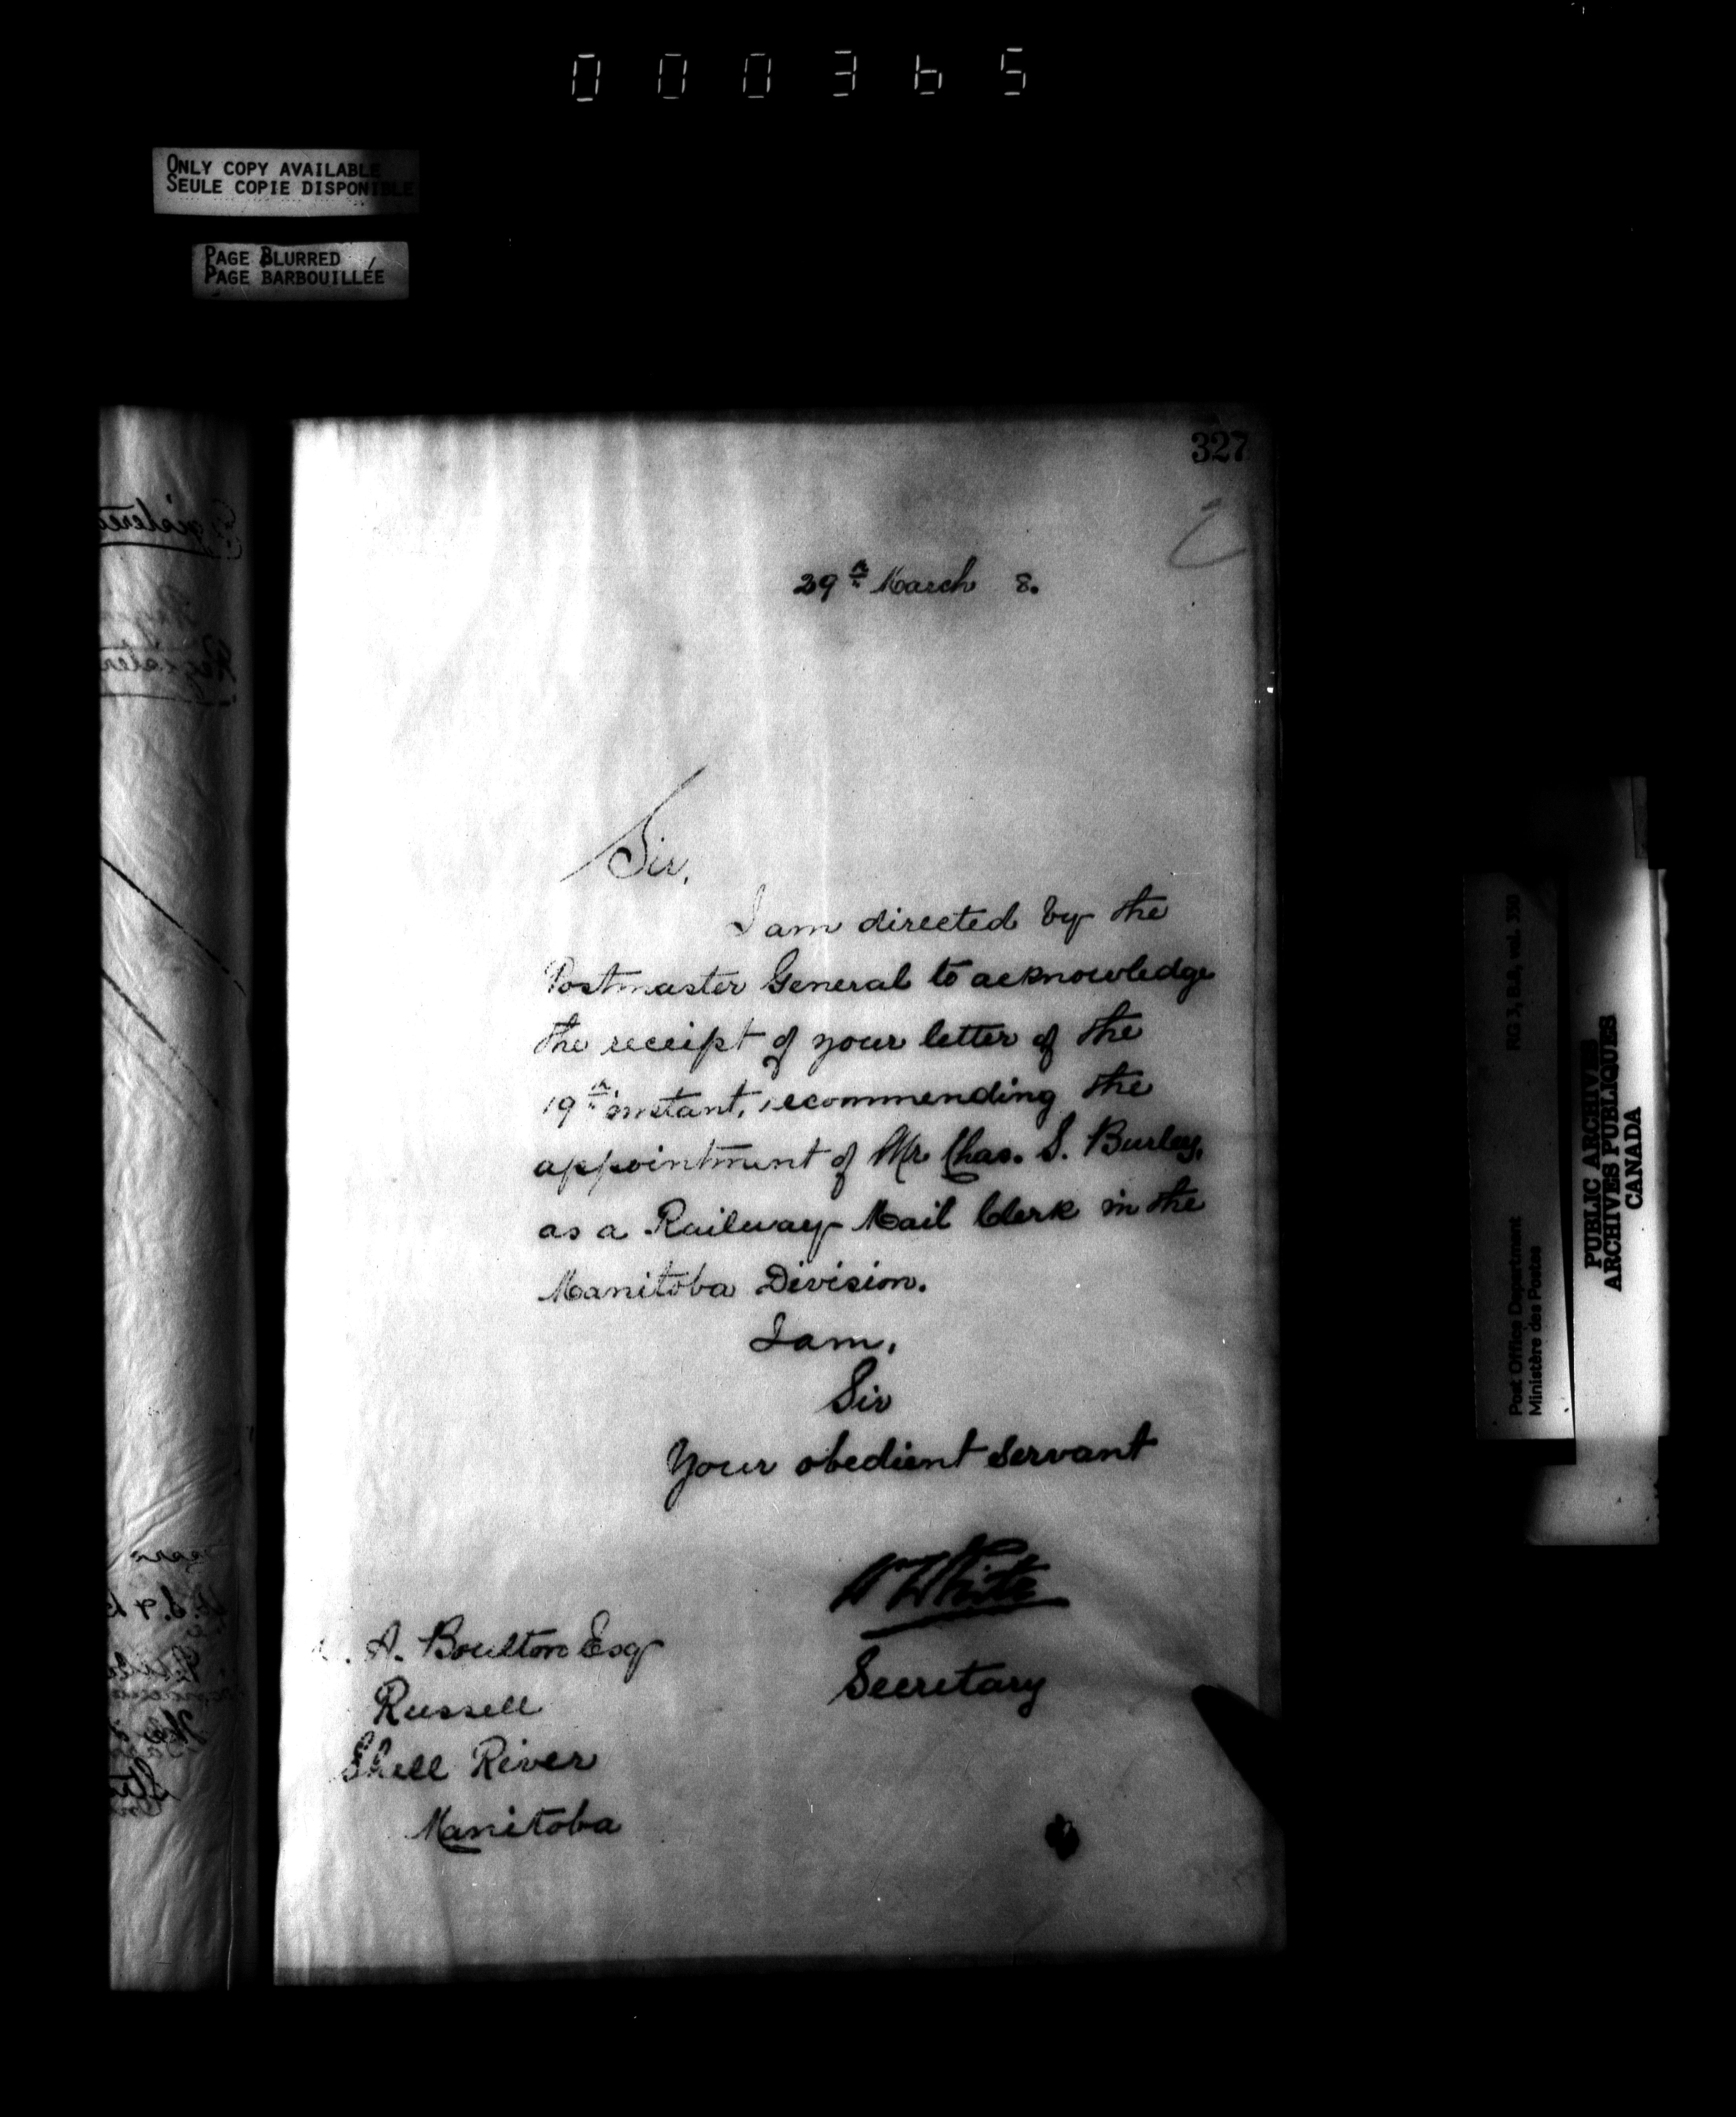 000365
ONLY COPY AVAILABLE
SEULE COPIE DISPONIBLE
PAGE BLURRED
PAGE BARBOUILLÉE
327
29th March 8.
Sir,
I am directed by the
Postmaster General to acknowledge
the receipt of your letter of the
19th instant, recommending the
appointment of Mr Chas. S. Burley,
as a Railway Mail Clerk in the
Manitoba Division.
I am,
Sir
Your obedient servant
Wm White
Secretary
A. Boulton Esq
Russell
Shell River
Manitoba
Post Office Department
Ministère des Postes
RG 3, vol. 350
PUBLIC ARCHIVES
ARCHIVES PUBLIQUES
CANADA